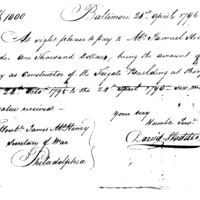 $ 1000 Baltimore 24th April 1796
At sight please to pay to Mr. Samuel
One Thousand Dollars, being the amount of
as Constructor of the Frigate Building at this
1795 to the 24th April 1796
value received
your very
Humble Servt
Honble. James McHenry
David Stodder
Secretary of War
Philadelphia